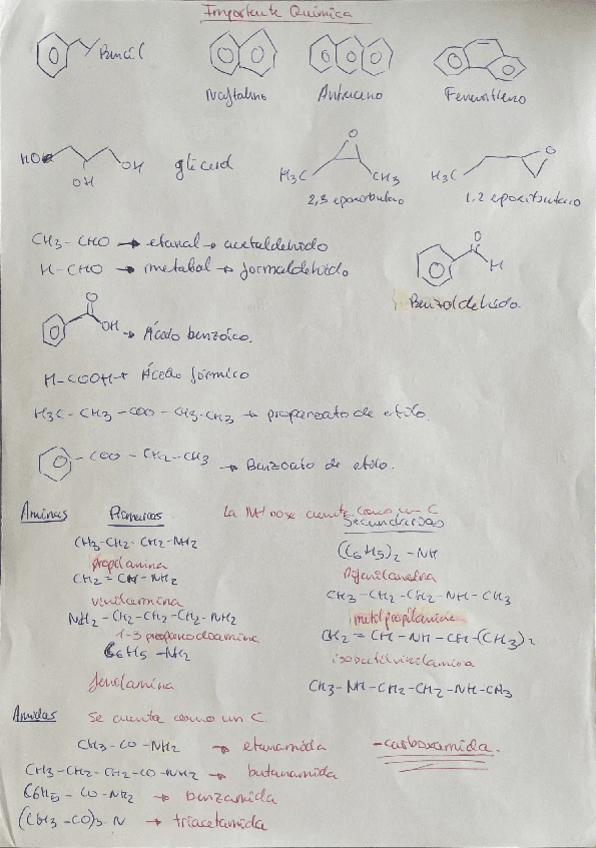 Importante Química
Bencil
Naftaleno
Antraceno
Fenantreno
HO
OH
OH
glicerol
O
H3C
CH3
2,3 epoxibutano
O
H3C
1,2 epoxibutano
CH3 - CHO → etanal → acetaldehido
H - CHO → metanal → formaldehido
O
H
Benzaldehido.
O
OH → Ácido benzóico.
H - COOH → Ácido fórmico
H3C - CH3 - COO - CH3-CH3 → propanoato de etilo.
- COO - CH2 - CH3 → Benzoato de etilo.
Aminas
Primarias
La NH no se cuenta como un C
Secundarias
CH3-CH2-CH2-NH2
propilamina
CH2=CH-NH2
vinilamina
NH2-CH2-CH2-CH2-NH2
1-3 propanodiamina
C6H5 - NH2
fenilamina
(C6H5)2 - NH
Difenilamina
CH3-CH2-CH2-NH-CH3
metilpropilamina
CH2=CH-NH-CH-(CH3)2
CH3-NH-CH2-CH2-NH-CH3
Amidas
Se cuenta como un C.
CH3-CO-NH2 → etanamida
-carboxamida.
CH3-CH2-CH2-CO-NH2 → butanamida
C6H5 - CO-NH2 → benzamida
(CH3-CO)3 N → triacetamida